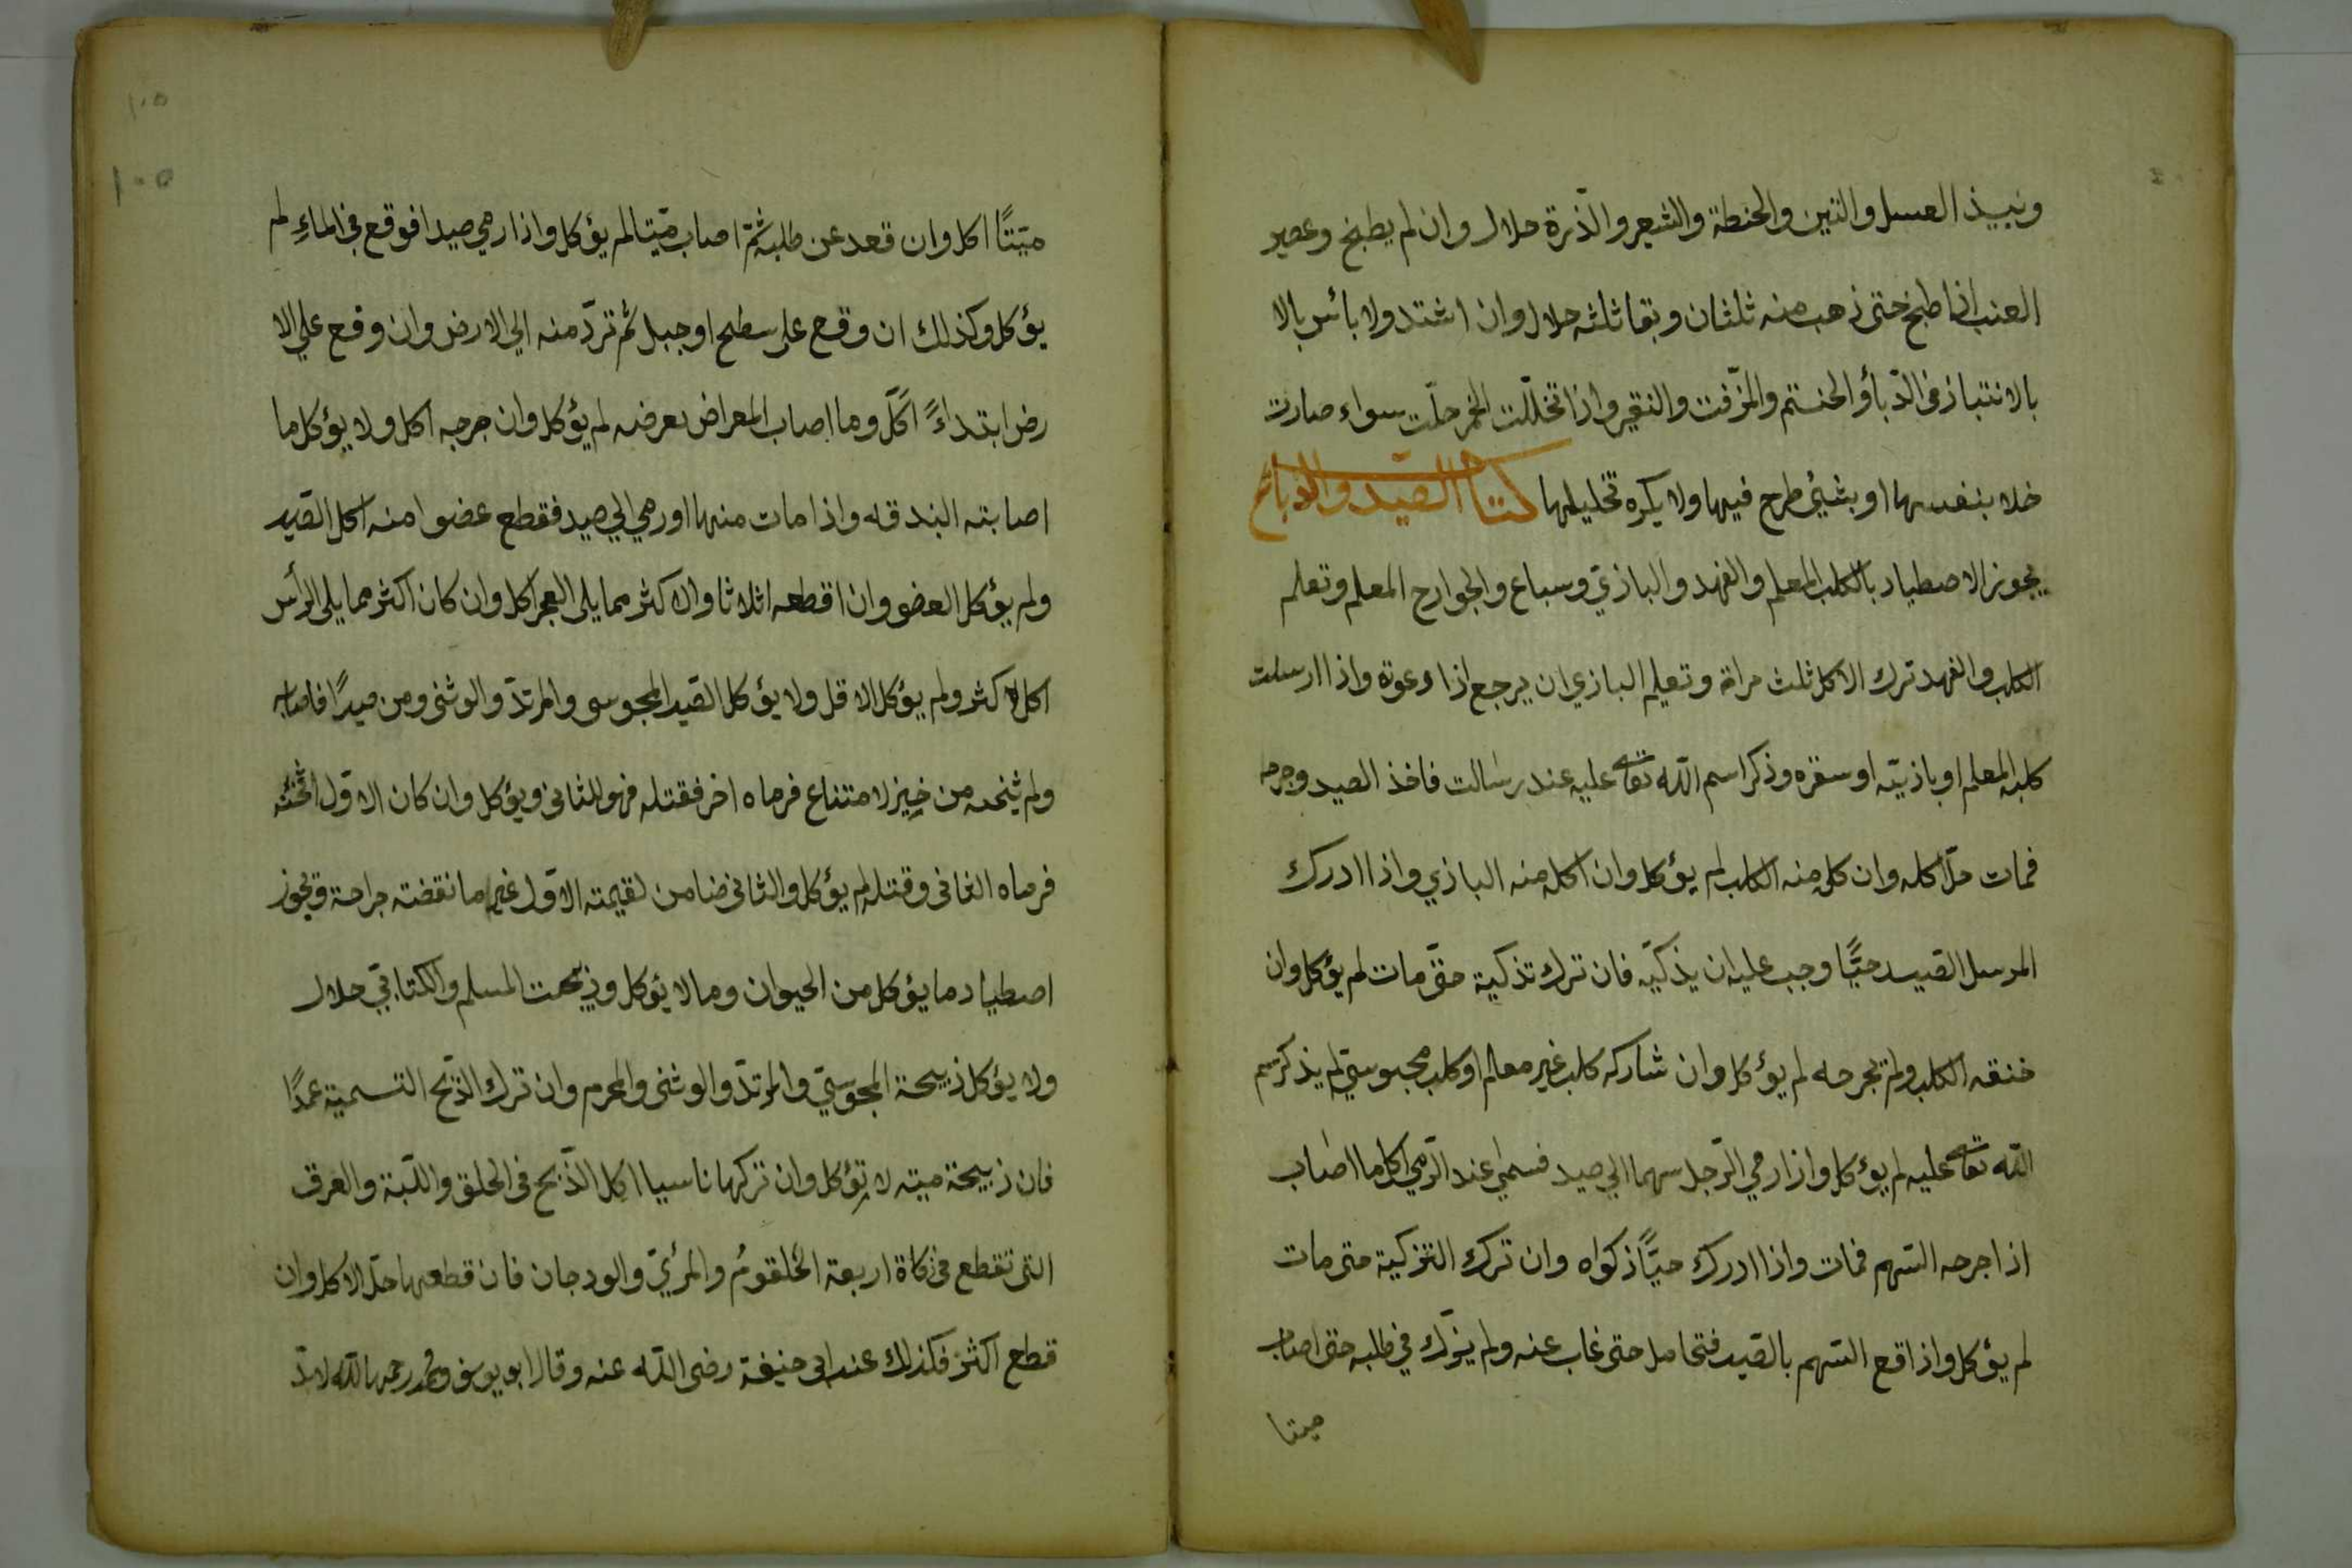 ونبيذ العسل والتين والحنطة والشعير والذّرة حلال وان لم يطبخ وعصير
العنب اذا طبخ حتى ذهب منه ثلثان وبقا ثلثه حلال وان اشتد ولا بأس بالا
بالانتباذ فى الدّبأو الحنتم والمزّفت والنقير واذا تخلّلت الخمر حلّت سواء صارت
خلا بنفسها او بشيئ طرح فيها ولا يكره تخليلها كتاب الصّيد والذبائح
يجوز الاصطياد بالكلب المعلم والفهد والبازي وسباع والجوارح المعلم وتعلم
الكلب والفهد ترك الاكل ثلث مراة وتعليم البازي ان يرجع اذا دعوة واذا ارسلت
كلبه المعلم او بازيّه او سقره وذكر اسم اللّه تعا عليه عند رسالت فاخذ الصيد وجرحه
فمات حلّ اكله وان كل منه الكلب لم يؤكل وان اكل منه البازي واذا ادرك
المرسل الصيد حيًّا وجب عليه ان يذكيّه فان ترك تذكية حتّى مات لم يؤكل وان
خنقه الكلب ولم يجرحه لم يؤكل وان شاركه كلب غير معالم او كلب مجوسيّ لم يذكر اسم
اللّه تعا عليه لم يؤكل واذا رمي الرّجل سهما الي صيد فسمي عند الرّمي اكل ما اصاب
اذا جرحه السّهم فمات واذا ادرك حيًّا ذكواه وان ترك التزكية حتى مات
لم يؤكل واذا قع السّهم بالصّيد فتحامل حتى غاب عنه ولم يزك في طلبه حتى اصاب
ميتا
١٠٥
١٠٥
ميّتًا اكل وان قعد عن طلبه ثمّ اصاب ميّتا لم يؤكل واذا رمي صيدا فوقع فى الماءِ لم
يؤكل وكذلك ان وقع على سطح او جبل ثم تردّ منه الي الارض وان وقع علي الا
رض ابتداءً اكلّ وما اصاب المعراض بعرضه لم يؤكل وان جرحه اكل ولا يؤكل ما
اصابته البندقه واذا مات منها او رمي الي صيد فقطع عضوا منه اكل الصّيد
ولم يؤكل العضو وان اقطعه اثلاثا والاكثر مما يلى العجز اكل وان كان اكثر مما يلى الرأس
اكل الاكثر ولم يؤكل الاقل ولا يؤكل الصّيد المجوسى والمرتدّ والوثنى ومن صيدًا فاصابه
ولم يثخنه من خيز لامتناع فرماه اخر فقتله فهو للثانى ويؤكل وان كان الاوّل اثخنه
فرماه الثانى وقتله لم يؤكل والثانى ضامن لقيمته الاوّل غير ما نقضته جراحة ويجوز
اصطياد ما يؤكل من الحيوان وما لا يؤكل وذبيحت المسلم والكتابّي حلال
ولا يؤكل ذبيحة المجوسيّ والمرتدّ والوثنى والمحرم وان ترك الذّبح التسمية عمدًا
فان ذبيحة ميته لا تؤكل وان تركها ناسيا اكل الذّبح فى الحلق واللّبة والعرق
التى تقطع فى ذكاة اربعة الحلقومُ والمرئيّ والودجان فان قطعها حلّ الاكل وان
قطع اكثر فكذلك عند ابى حنيفة رضى اللّه عنه وقالا ابو يوسف ومحمد رحمهما اللّه لابدّ